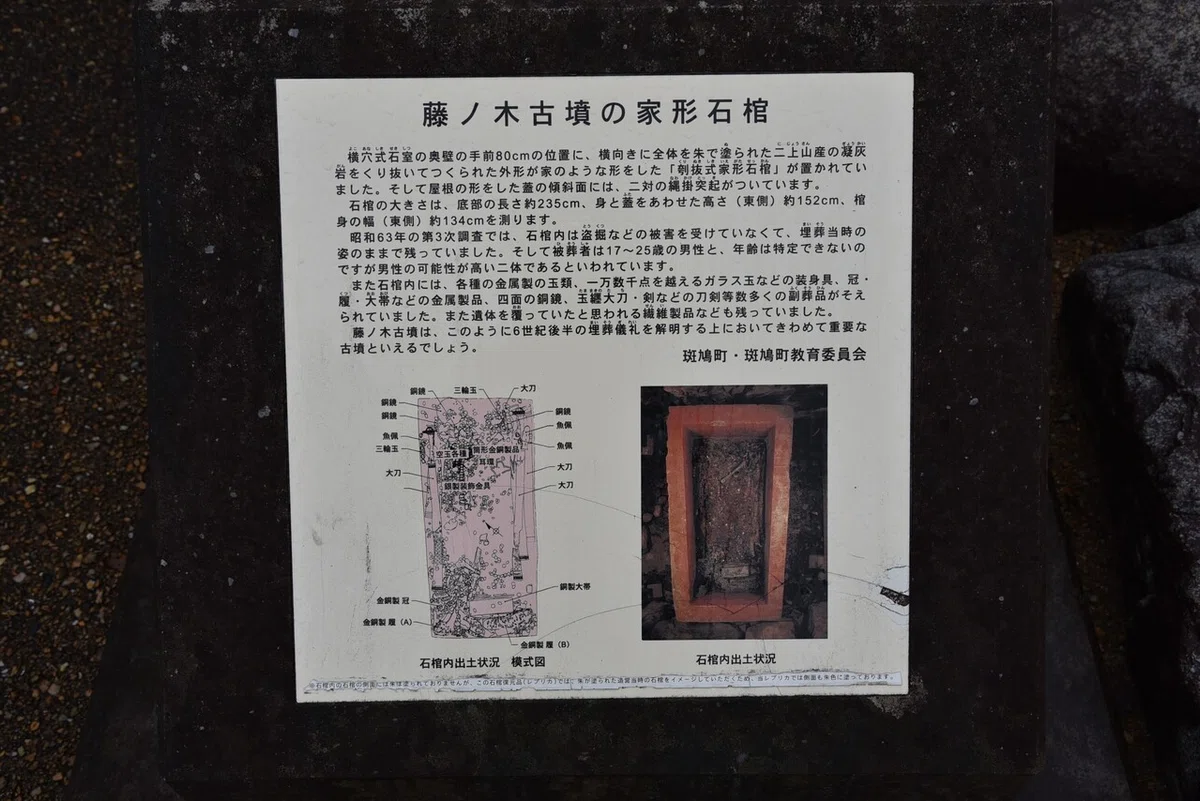 藤ノ木古墳の家形石棺
横穴式石室の奥壁の手前80cmの位置に、横向きに全体を朱で塗られた二上山産の凝灰
岩をくり抜いてつくられた外形が家のような形をした「刳抜式家形石棺」が置かれてい
ました。そして屋根の形をした蓋の傾斜面には、二対の縄掛突起がついています。
石棺の大きさは、底部の長さ約235cm、身と蓋をあわせた高さ（東側）約152cm、棺
身の幅（東側）約134cmを測ります。
昭和63年の第3次調査では、石棺内は盗掘などの被害を受けていなくて、埋葬当時の
姿のままで残っていました。そして被葬者は17〜25歳の男性と、年齢は特定できないの
ですが男性の可能性が高い二体であるといわれています。
また石棺内には、各種の金属製の玉類、一万数千点を越えるガラス玉などの装身具、冠・
履・大帯などの金属製品、四面の銅鏡、玉纒大刀・剣などの刀剣等数多くの副葬品がそえ
られていました。また遺体を覆っていたと思われる繊維製品なども残っていました。
藤ノ木古墳は、このように6世紀後半の埋葬儀礼を解明する上においてきわめて重要な
古墳といえるでしょう。
斑鳩町・斑鳩町教育委員会
銅鏡
三輪玉
大刀
銅鏡
銅鏡
銅鏡
魚佩
魚佩
三輪玉
魚佩
空玉各種
筒形金銅製品
耳環
大刀
大刀
銀製装飾金具
大刀
銅製大帯
金銅製 冠
金銅製 履（A）
金銅製 履（B）
石棺内出土状況　模式図
石棺内出土状況
※石棺内の石棺の側面には朱は塗られておりませんが、この石棺復元品（レプリカ）では、朱が塗られた造営当時の石棺をイメージしていただくため、当レプリカでは側面も朱色に塗っております。